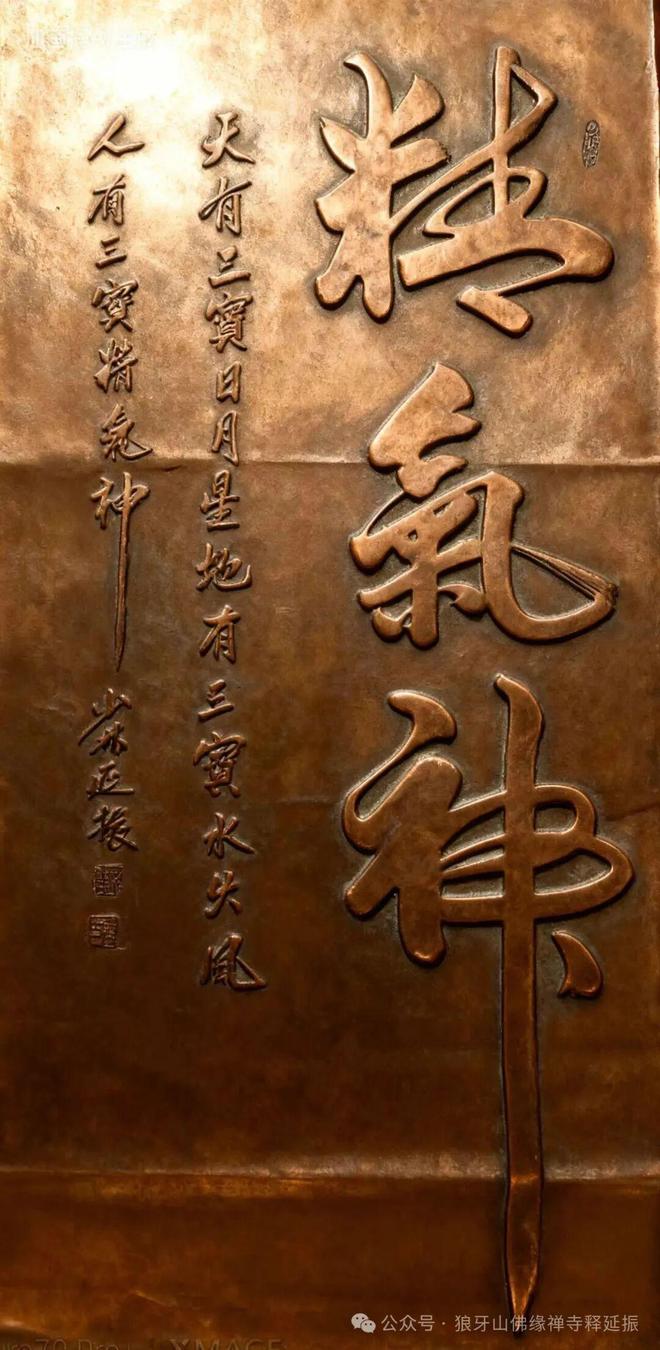 精氣神
天有三寶日月星地有三寶水火風
人有三寶精氣神
少林延振
公众号·狼牙山佛缘禅寺释延振
XMAGE